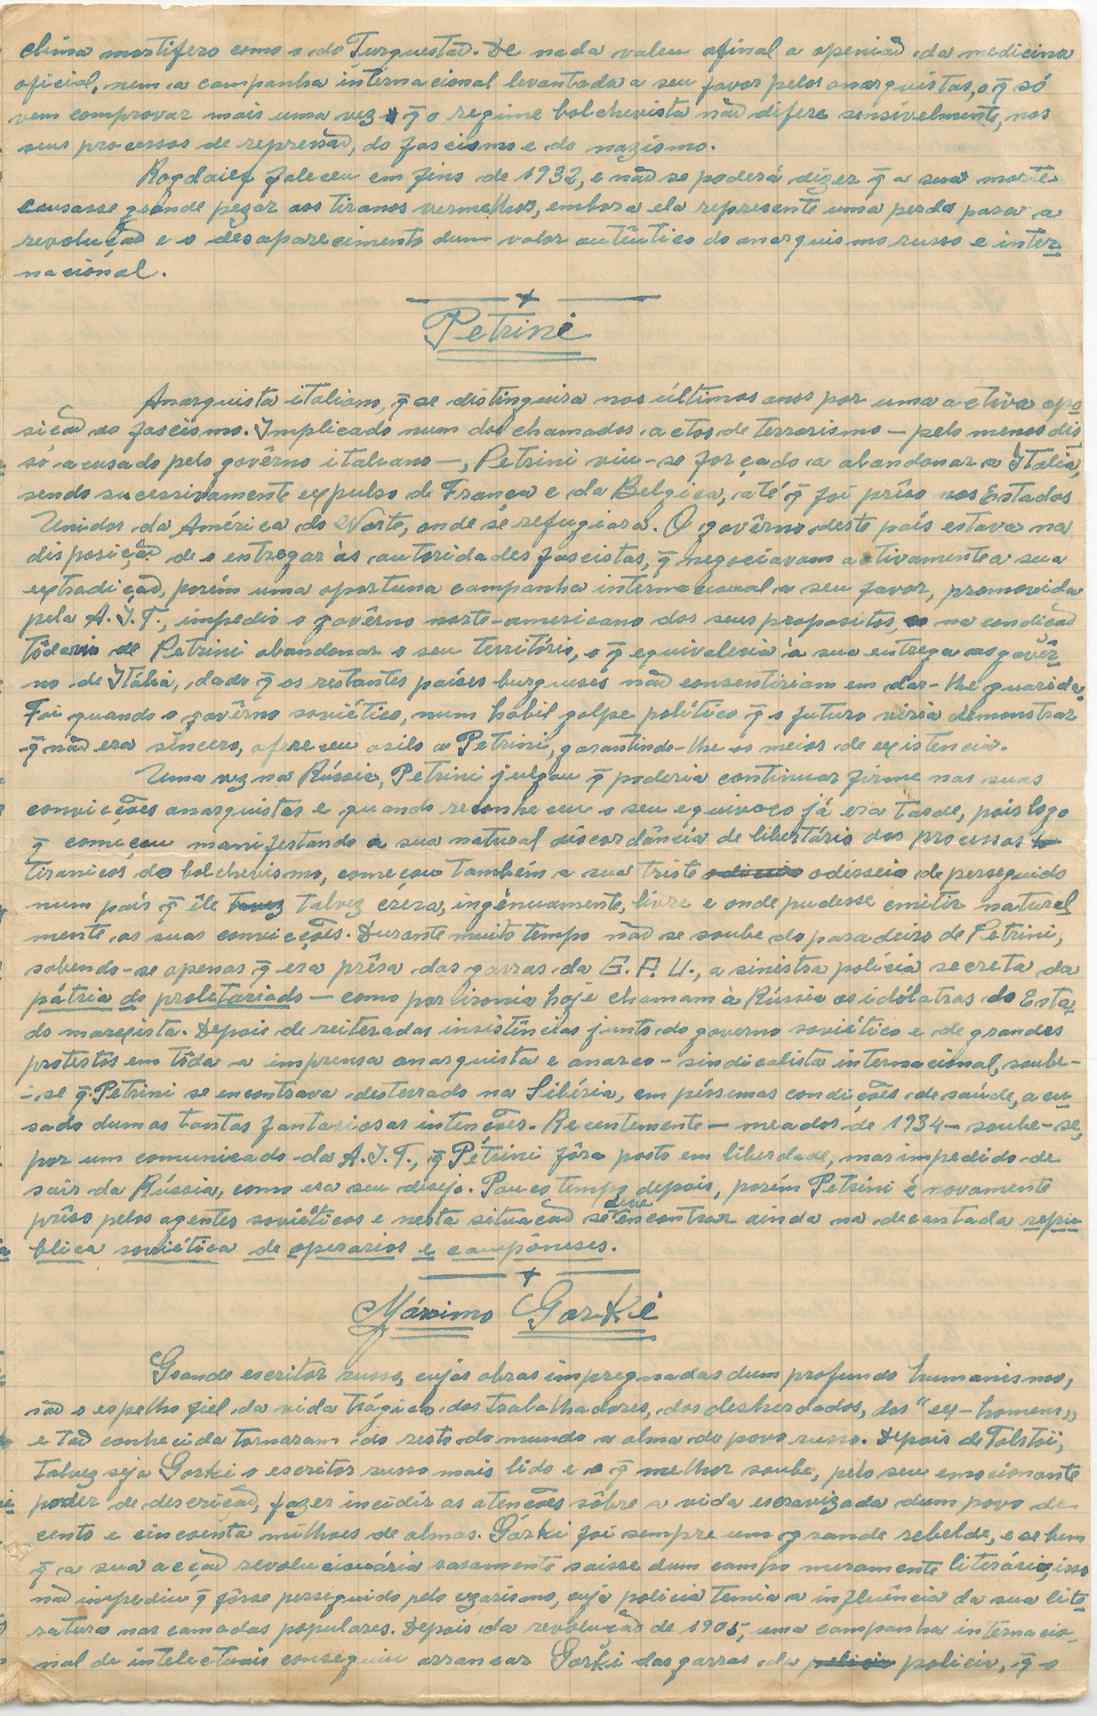 clima mortifero como o do Turquestão. De nada valeu afinal a openião da medicina
oficial, nem a campanha internacional levantada a seu favor pelos anarquistas, o q̄ só
vem comprovar mais uma vez q̄ o regime bolchevista não difere sensivelmente, nos
seus processos de repressão, do fascismo e do nazismo.
Rogdaief faleceu em fins de 1932, e não se poderá dizer q̄ a sua morte
causasse grande pezar aos tiranos vermelhos, embora ela represente uma perda para a
revolução e o desaparecimento dum valor autêntico do anarquismo russo e inter-
nacional.
Petrini
Anarquista italiano, q̄ se distinguira nos últimos anos por uma activa opo-
sição ao fascismo. Implicado num dos chamados actos de terrorismo — pelo menos dis-
só acusado pelo govêrno italiano —, Petrini viu-se forçado a abandonar a Itália,
sendo sucessivamente expulso de França e da Belgica, até q̄ foi prêso nos Estados
Unidos da América do Norte, onde se refugiara. O govêrno deste país estava na
disposição de o entregar às autoridades fascistas, q̄ negociavam activamente a sua
extradição, porém uma oportuna campanha internacional a seu favor, promovida
pela A. I. T., impediu o govêrno norte-americano dos seus propositos, na condição
tôdavia de Petrini abandonar o seu território, o q̄ equivaleria à sua entrega ao govêr-
no de Itália, dado q̄ os restantes países burgueses não consentiriam em dar-lhe guarida.
Foi quando o govêrno soviético, num hábil golpe político q̄ o futuro viria demonstrar
q̄ não era sincero, ofereceu asilo a Petrini, garantindo-lhe os meios de existencia.
Uma vez na Rússia, Petrini julgou q̄ poderia continuar firme nas suas
convicções anarquistas e quando reconheceu o seu equivoco já era tarde, pois logo
q̄ começou manifestando a sua natural discordância de libertário dos processos
tiranicos do bolchevismo, começou também a sua triste odisseia de perseguido
num país q̄ êle talvez crera, ingênuamente, livre e onde pudesse emitir natural
mente as suas convicções. Durante muito tempo não se soube do paradeiro de Petrini,
sabendo-se apenas q̄ era prêsa das garras da G. P. U., a sinistra polícia secreta da
pátria do proletariado — como por ironia hoje chamam à Rússia os idólatras do Esta-
do marxista. Depois de reiteradas insistências junto do governo soviético e de grandes
protestos em tôda a imprensa anarquista e anarco-sindicalista internacional, soube-
-se q̄ Petrini se encontrava desterrado na Sibéria, em péssimas condições de saúde, acu-
sado dumas tantas fantasiosas intenções. Recentemente — meados de 1934 — soube-se,
por um comunicado da A. I. T., q̄ Petrini fôra posto em liberdade, mas impedido de
sair da Rússia, como era seu desejo. Pouco tempo depois, porém Petrini é novamente
prêso pelos agentes soviéticos e nesta situação se deve encontrar ainda na decantada repú-
blica soviética de operarios e camponeses.
Máximo Gorki
Grande escritor russo, cujas obras impregnadas dum profundo humanismo,
são o espelho fiel da vida trágica dos trabalhadores, dos deserdados, dos "ex-homens"
e tão conhecida tornaram do resto do mundo a alma do povo russo. Depois de Tolstoi,
talvez seja Gorki o escritor russo mais lido e o q̄ melhor soube, pelo seu emocionante
poder de descrição, fazer incidir as atenções sôbre a vida escravizada dum povo de
cento e cincoenta milhoes de almas. Górki foi sempre um grande rebelde, e se bem
q̄ a sua acção revolucionária raramente saisse dum campo meramente literário, isso
não impediu q̄ fôsse perseguido pelo czarismo, cuja policia temia a influência da sua lite-
ratura nas camadas populares. Depois da revolução de 1905, uma campanha internacio-
nal de intelectuais conseguiu arrancar Gorki das garras da policia, q̄ o